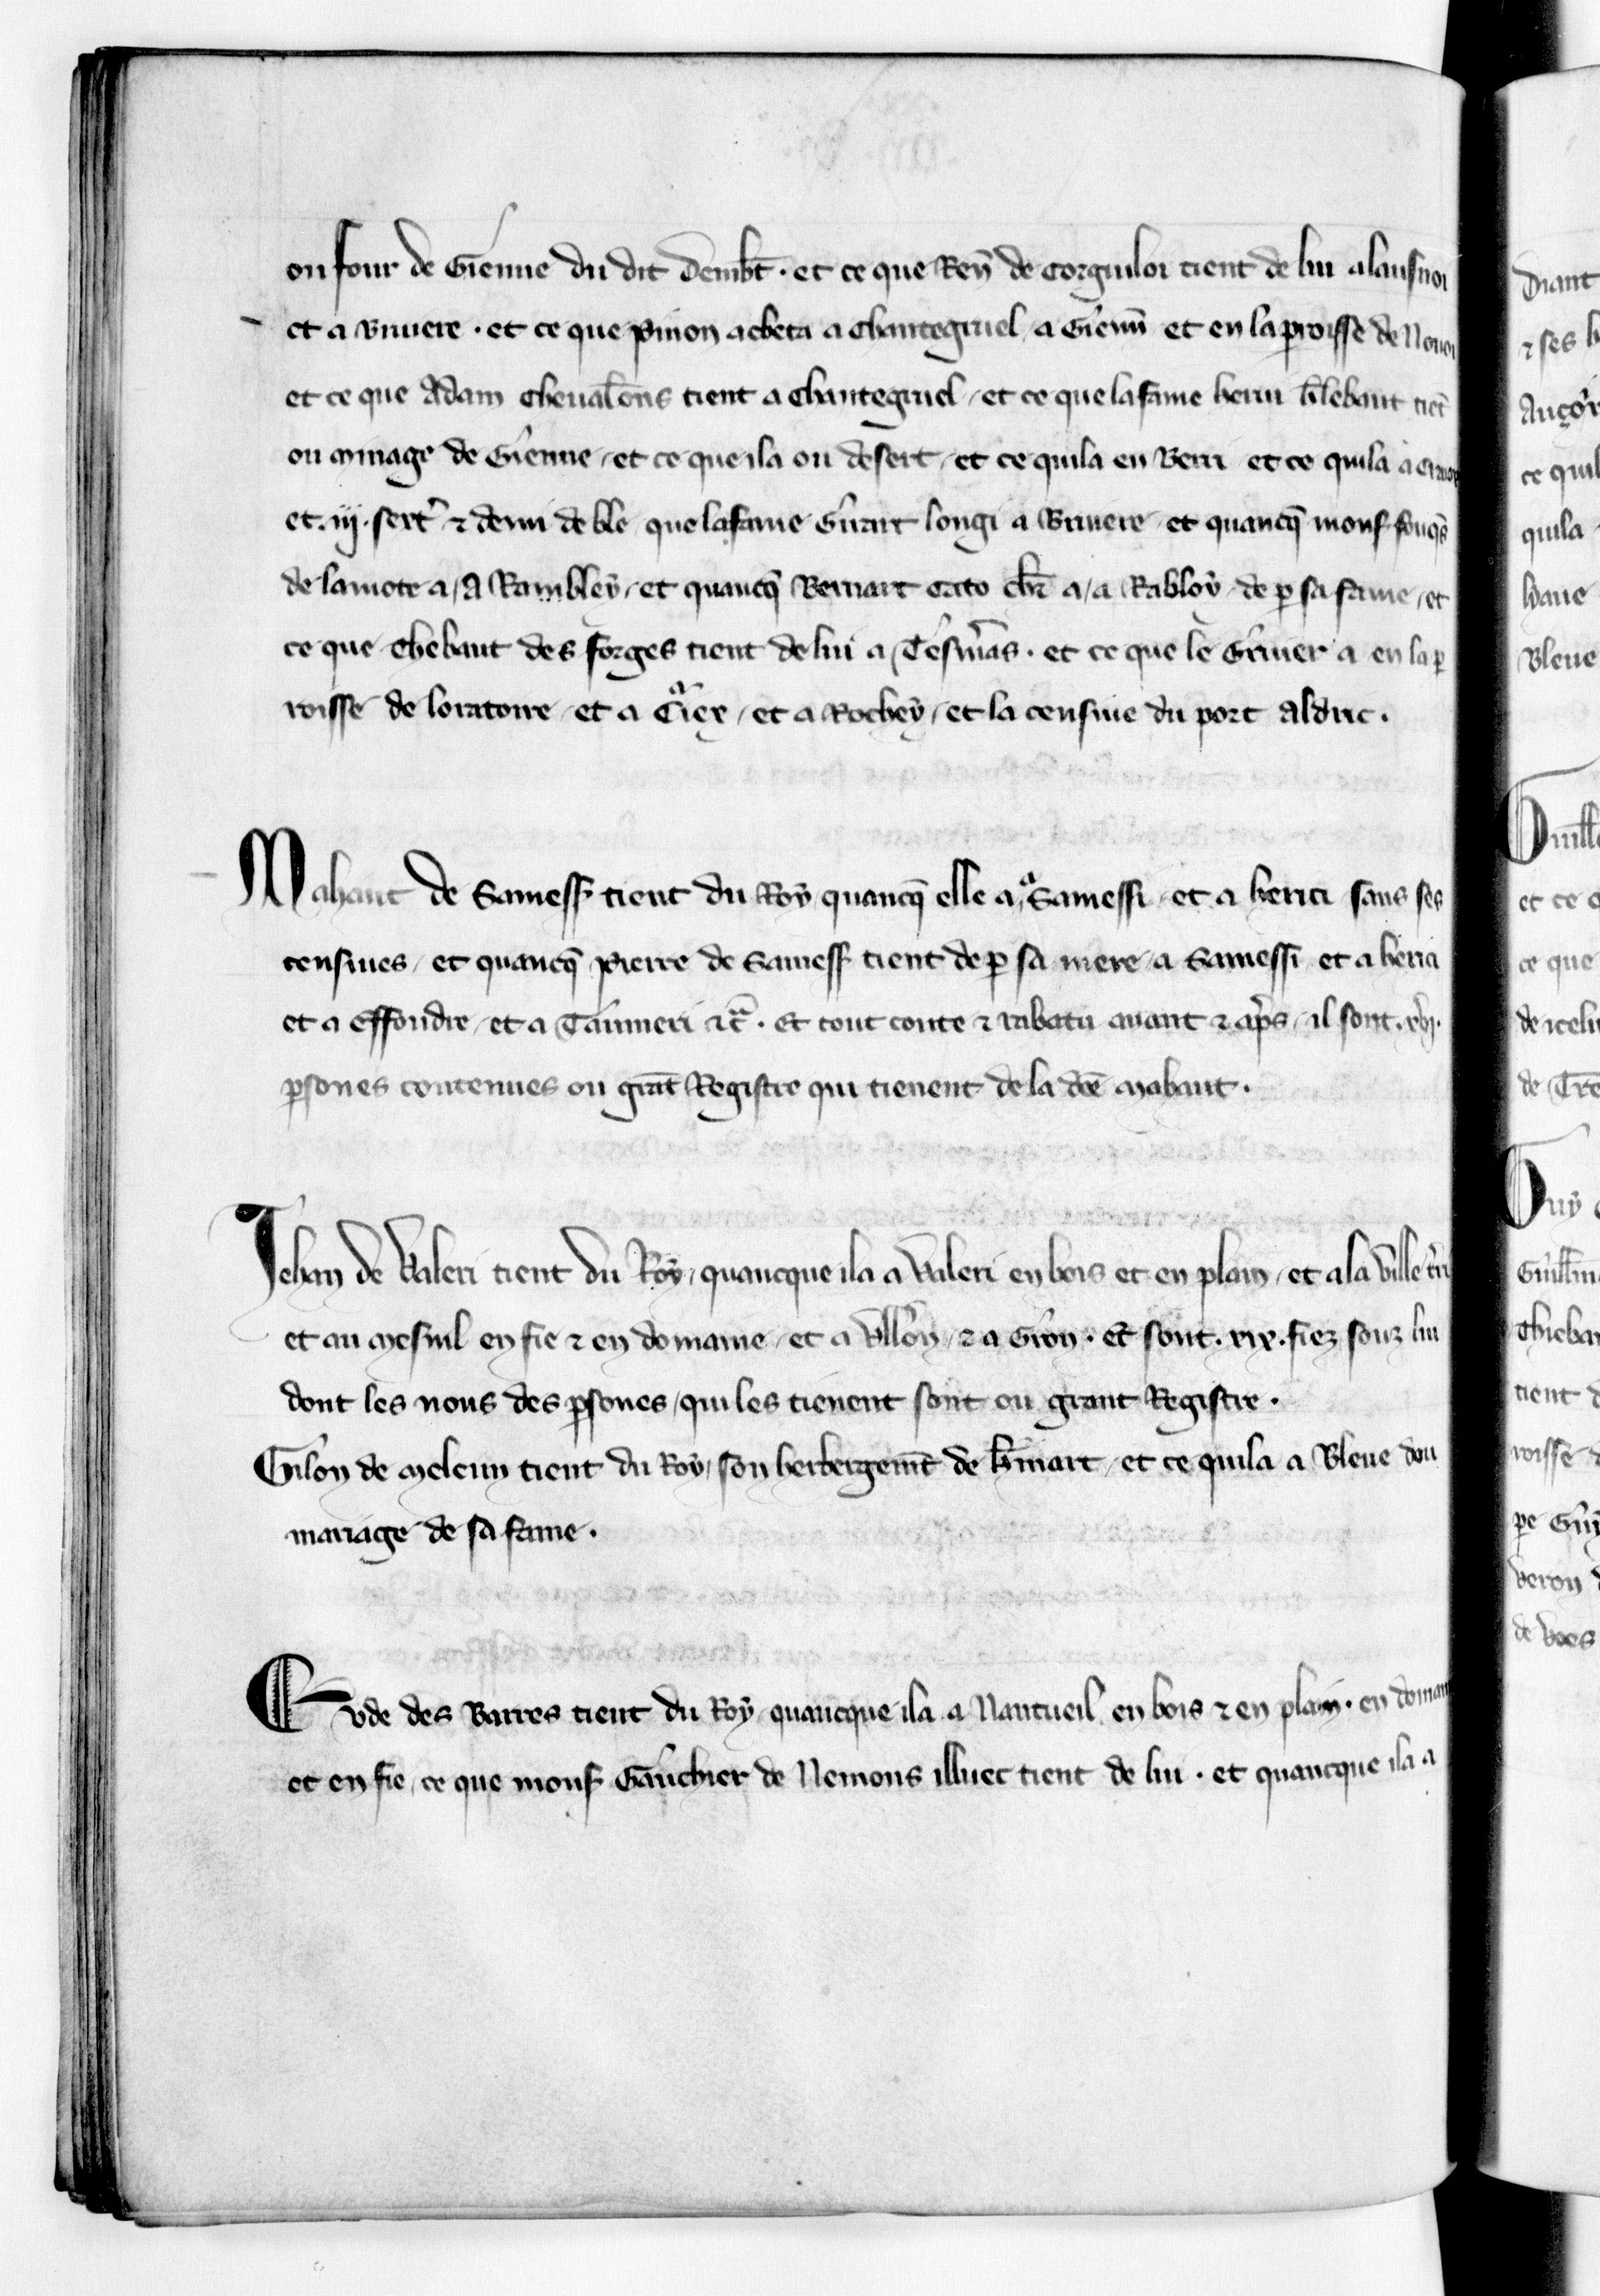 ou four de Gienne du dit Demb̄t · et ce que Reñ de Corguiloi tient de lui a lausnoi
et a Bruiere · et ce que Pinon acheta a Chantegruel a Gienñ et en la proisse de Nouoi
et ce que Adam Cheualōns tient a Chantegruel / et ce que la fame henri tient
ou minage de Gienne / et ce que il a ou desert / et ce quil a en Berri et ce quil a a
et . iij . sext᾿ ⁊ demi de ble que la fame Girart longi a Bruiere et quancq̄ mons fouq̄s
de la mote a / A Rambley / et quancq̄ Bernart Cato ch̄r a / a Rabloy de ꝑ sa fame / et
ce que Thebaut des forges tient de lui a / · et ce que le Gruier a en la ꝑ
roisse de loratoire / et a Criex / et a Rochey / et la censiue du port Aldric .
Mahaut de Samess tient du Roy quancq̄ elle a a Samessi / et a herici sans ses
censiues / et quancq̄ Pierre de Samess tient de ꝑ sa mere / a Samessi et a herici
et a Effondre / et a Taumeri ⁊c̄ . Et tout conte ⁊ rabatu auant ⁊ ap̄s / il sont . xvj .
ꝑsones contenues ou grāt Registre qui tienent de la dc̄e Mahaut .
Jehan de Valeri tient du Roy / quancque il a a Valeri en bois et en plain / et a la ville
et au Mesnil en fie ⁊ en domaine / et a Vllon / ⁊ a Gron . Et sont . xix . fiez souz lui
dont les nons des ꝑsones / qui les tienent sont ou grant Registre .
Gilon de Meleun tient du Roy / son herbergem̄t de / et ce quil a a Bleue dou
mariage de sa fame .
Eude des Barres tient du Roy quancque il a a Nantueil en bois ⁊ en plain . en domaine
et en fie / ce que mons Gauchier de Nemous illuec tient de lui . et quancque il a a